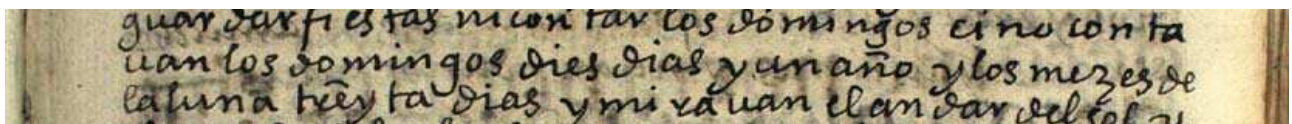 guardar fiestas ni contar los domingos cino conta
uan los domingos dies dias y un año y los mezes de
la luna treyta dias y mirauan el andar del sol y